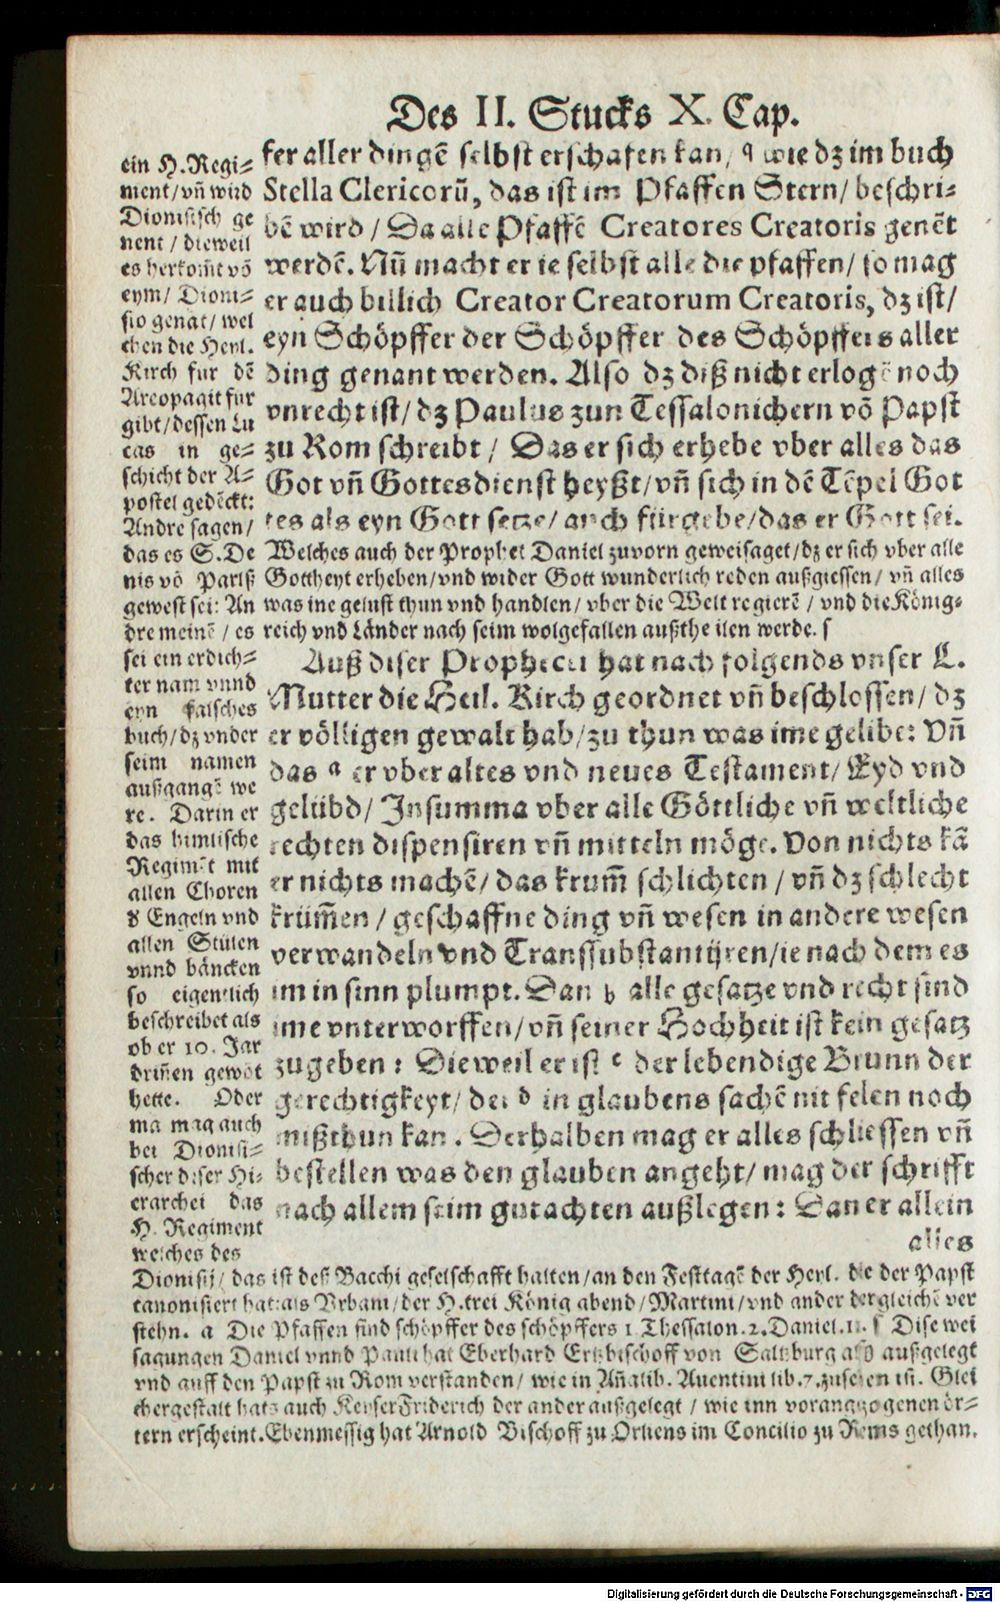 Des II. Stucks X. Cap.
fer aller dingē selbst erschafen kan/ q wie dz im buch
Stella Clericorū, das ist im Pfaffen Stern/ beschri-
bē wird / Da alle Pfaffē Creatores Creatoris genēt
werdē. Nū macht er ie selbst alle die pfaffen/ so mag
er auch billich Creator Creatorum Creatoris, dz ist/
eyn Schöpffer der Schöpffer des Schöpffers aller
ding genant werden. Also dz diß nicht erlogē noch
vnrecht ist/ dz Paulus zun Tessalonichern vō Papst
zu Rom schreibt / Das er sich erhebe vber alles das
Got vn̄ Gottesdienst heyßt/ vn̄ sich in dē Tēpel Got
tes als eyn Gott setze/ auch fürgebe/ das er Gott sei.
Welches auch der Prophet Daniel zuvorn geweisaget/ dz er sich vber alle
Gottheyt erheben/ vnd wider Gott wunderlich reden außgiessen/ vn̄ alles
was ine gelust thun vnd handlen/ vber die Welt regierē / vnd die König-
reich vnd Länder nach seim wolgefallen außtheilen werde. s
Auß diser Prophecei hat nach folgends vnser L.
Mutter die Heil. Kirch geordnet vn̄ beschlossen/ dz
er völligen gewalt hab/ zu thun was ime gelibe: Vn̄
das a er vber altes vnd neues Testament/ Eyd vnd
gelübd/ Insumma vber alle Göttliche vn̄ weltliche
rechten dispensiren vn̄ mitteln möge. Von nichts kā
er nichts machē/ das krum̄ schlichten / vn̄ dz schlecht
krüm̄en / geschaffne ding vn̄ wesen in andere wesen
verwandeln vnd Transsubstantijren/ ie nach dem es
im in sinn plumpt. Dan b alle gesatze vnd recht sind
ime vnterworffen/ vn̄ seiner Hochheit ist kein gesatz
zugeben : Dieweil er ist c der lebendige Brunn der
gerechtigkeyt/ der d in glaubens sachē nit felen noch
mißthun kan . Derhalben mag er alles schliessen vn̄
bestellen was den glauben angeht/ mag der schrifft
nach allem seim gutachten außlegen : Dan er allein
alles
ein H. Regi-
ment/ vn̄ wird
Dionisisch ge
nent / dieweil
es herkom̄t vō
eym/ Dioni-
sio genāt/ wel
chen die Heyl.
Kirch fur dē
Areopagit fur
gibt/ dessen Lu
cas in ge-
schicht der A-
postel gedēckt:
Andre sagen/
das es S. De
nis vō Pariß
gewest sei: An
dre meinē / es
sei ein erdich-
ter nam vnnd
eyn falsches
buch/ dz vnder
seim namen
außgangē we
re. Darin er
das himlische
Regimēt mit
allen Choren
d Engeln vnd
allen Stülen
vnnd bäncken
so eigentlich
beschreibet als
ob er 10. Jar
drin̄en gewōt
hette. Oder
ma mag auch
bei Dionisi-
scher diser Hi-
erarchei das
H. Regiment
welches des
Dionisij/ das ist deß Bacchi geselschafft halten/ an den Festtagē der Heyl. die der Papst
canonisiert hat: als Vrbani/ der H. trei König abend/ Martini/ vnd ander dergleichē ver
stehn. a Die Pfaffen sind schöpffer des schöpffers 1. Thessalon. 2. Daniel. 11. s Dise wei
sagungen Daniel vnnd Pauli hat Eberhard Ertzbischoff von Saltzburg also außgelegt
vnd auff den Papst zu Rom verstanden/ wie in An̄alib. Auentini lib. 7. zusehen ist. Glei
chergestalt hats auch Keyser Friderich der ander außgelegt / wie inn vorangezogenen ör-
tern erscheint. Ebenmessig hat Arnold Bischoff zu Orliens im Concilio zu Rems gethan.
Digitalisierung gefördert durch die Deutsche Forschungsgemeinschaft - DFG